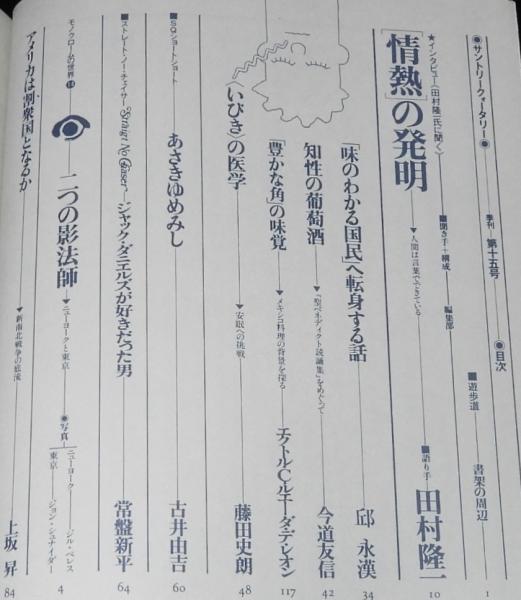 ●サントリークォータリー●
季刊 第十五号
●目次
■遊歩道 書架の周辺 1
★インタビュー〈田村隆一氏に聞く〉
■聞き手＋構成 編集部
「情熱」の発明
▼人間は言葉でできている
■語り手 田村隆一 10
「味のわかる国民」へ転身する話 邱永漢 34
知性の葡萄酒 ▼『聖ベネディクト読誦集』をめぐって 今道友信 42
「豊かな角」の味覚 ▼メキシコ料理の背景を探る エクトルC・ルエーダ・デ・レオン 117
〈いびき〉の医学 ▼安眠への挑戦 藤田史朗 48
■SQショートショート
あさきゆめみし 古井由吉 60
■ストレート・ノー・チェイサー Straight No Chaser ジャック・ダニエルズが好きだった男 常盤新平 64
モノクロームの世界14
二つの影法師 ▼ニューヨークと東京 ●写真 ニューヨーク ジル・ペレス
東京 ジョン・シュナイダー 4
アメリカは割衆国となるか ▼新南北戦争の底流 上坂昇 84